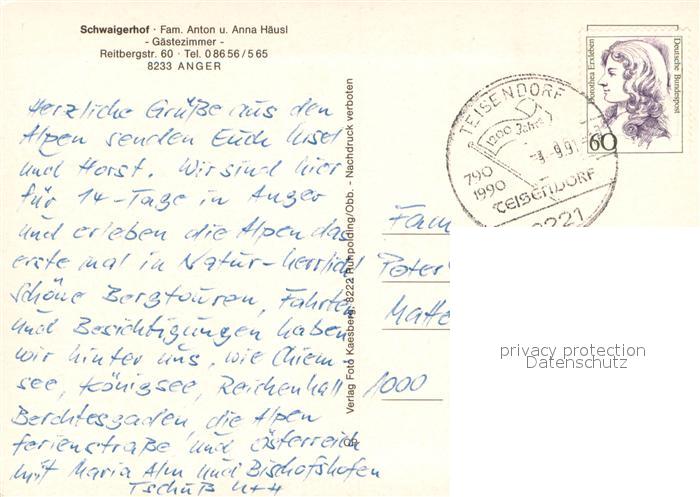 Schwaigerhof · Fam. Anton u. Anna Häusl
- Gästezimmer -
Reitbergstr. 60 · Tel. 0 86 56 / 5 65
8233 ANGER
Herzliche Grüße aus den
Alpen senden Euch Ursel
und Horst. Wir sind hier
für 14-Tage in Anger
und erleben die Alpen das
erste mal in Natur-herrlich
schöne Bergtouren, Fahrten
und Besichtigungen haben
wir hinter uns, wie Chiem-
see, Königsee, Reichenhall
Berchtesgaden, die Alpen
ferienstraße und Österreich
mit Maria Alm und Bischofshofen
Tschüß U+H
Verlag Foto Kaesberg, 8222 Ruhpolding/Obb. - Nachdruck verboten
TEISENDORF
1200 Jahre
790
1990
-9.91
TEISENDORF
8221
Dorothea Erxleben
Deutsche Bundespost
60
Fam
Peter
Matte
1000
privacy protection
Datenschutz